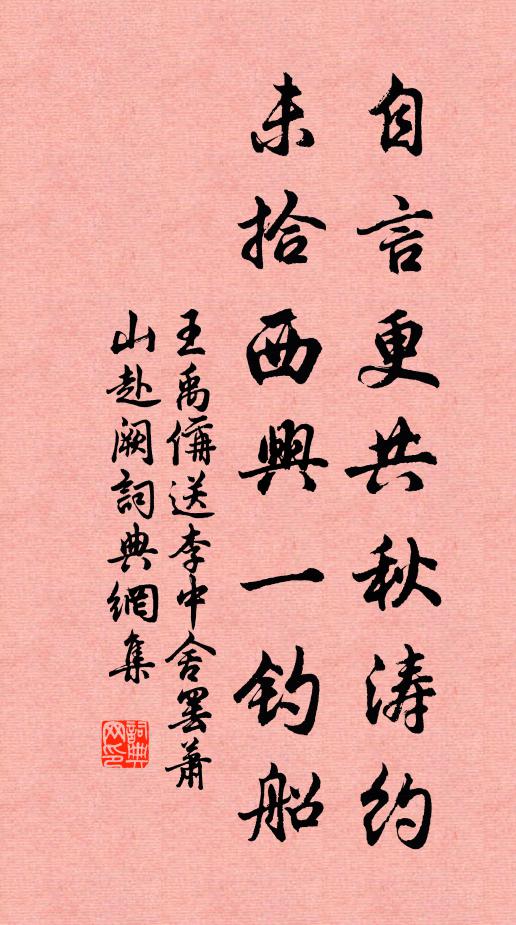 自言更共秋涛约
未拾西興一钓船
王禹偁送李中舍罢萧
山赴阙詞典網集
詞典網印